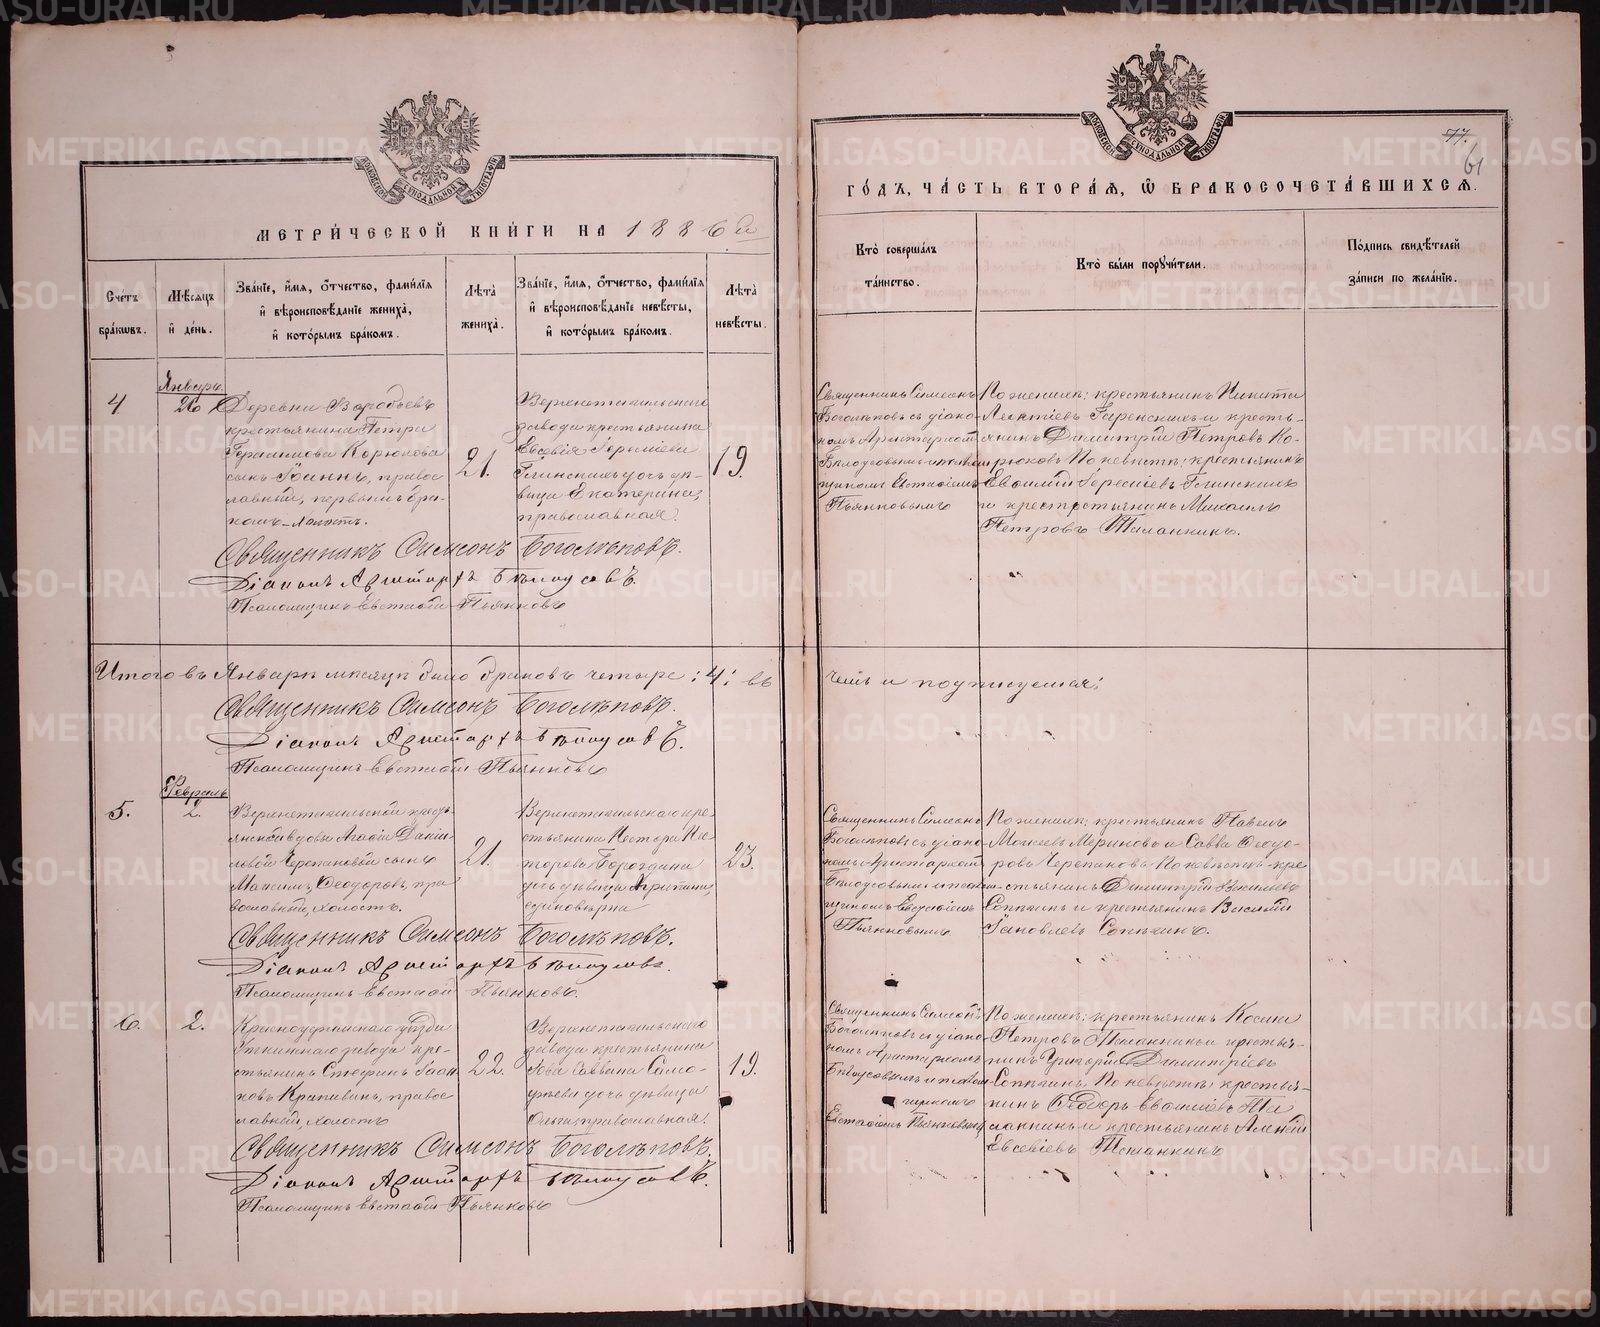 МЕТРИ́ЧЕСКОЙ КНИ́ГИ НА 1886 й
Сче́тъ бра́кѡвъ.
Мѣ́сяцъ и҆ де́нь.
Зва́нїе, и҆́мя, ѻ҆́тчество, фами́лїя и҆ вѣроисповѣ́данїе жениха̀, и҆ кото́рымъ бра́комъ.
Лѣ́та жениха̀.
Зва́нїе, и҆́мя, ѻ҆́тчество, фами́лїя и҆ вѣроисповѣ́данїе невѣ́сты, и҆ кото́рымъ бра́комъ.
Лѣ́та невѣ́сты.
4
Январь.
26
Деревни Воробьевъ
крестьянина Петра
Герасимова Корюкова
сынъ Іоаннъ, правос
лавный, первымъ бра
комъ - холостъ.
21.
Верхнетагильскаго
завода крестьянина
Евсевія
дочь дѣ-
вица Екатерина,
православная.
19.
Священникъ Симеонъ Боголѣповъ.
Діаконъ Аристархъ Бѣлоусовъ.
Псаломщикъ Евстафій Пьянковъ
Итого въ Январѣ мѣсяцѣ было браковъ четыре: 4: въ
Священникъ Симеонъ Боголѣповъ.
Діаконъ Аристархъ Бѣлоусовъ.
Псаломщикъ Евстафій Пьянковъ
5.
Февраль
2.
Верхнетагильской кресть
янской вдовы Агафіи Даніи
ловой Черепановой сынъ
Максимъ Ѳеодоровъ, пра
вославный, холостъ.
21.
Верхнетагильскаго кре
стьянина Нестора Нес
торова Бороздина
дочь дѣвица Агрипина,
единовѣрка
23.
Священникъ Симеонъ Боголѣповъ.
Діаконъ Аристархъ Бѣлоусовъ.
Псаломщикъ Евстафій Пьянковъ.
6.
2.
Красноуфимскаго уѣзда
Уткинскаго завода кре-
стьянинъ Стефанъ Іоан
новъ Крапивинъ, правос
лавный, холостъ
22.
Верхнетагильскаго
завода крестьянина
Іова Саввина Само-
дочь дѣвица
Ольга, православная.
19.
Священникъ Симеонъ Боголѣповъ.
Діаконъ Аристархъ Бѣлоусовъ.
Псаломщикъ Евстафій Пьянковъ
77.
61
ГО́ДЪ, ЧА́СТЬ ВТОРА́Я, Ѡ҆ БРАКОСОЧЕТА́ВШИХСЯ.
Кто̀ соверша́лъ та́инство.
Кто̀ бы́ли порꙋчи́тели.
По́дпись свидѣ́телей за́писи по жела́нїю.
Священникъ Симеонъ
Боголѣповъ съ діако-
номъ Аристархомъ
Бѣлоусовымъ и псалом
щикомъ Евстафіемъ
Пьянковымъ
По женихѣ: крестьянинъ Никита
Леонтіевъ и кресть-
янинъ Димитрій Петровъ Ко-
рюковъ По невѣстѣ: крестьянинъ
Евсевіевъ
и крестьянинъ Михаилъ
Петровъ Таланкинъ.
чемъ и подписуемся:
Священникъ Симеонъ
Боголѣповъ съ діако-
номъ Аристархомъ
Бѣлоусовымъ и псалом-
щикомъ Евстафіемъ
Пьянковымъ
По женихѣ: крестьянинъ Павелъ
Моисеевъ Мериновъ и Савва Ѳеодо-
ровъ Черепановъ. По невѣстѣ: кре
стьянинъ Димитрій Васильевъ
Сопегинъ и крестьянинъ Василій
Іаковлевъ Сопегинъ.
Священникъ Симеонъ
Боголѣповъ съ діако-
номъ Аристархомъ
Бѣлоусовымъ и псалом-
щикомъ
Евстафіемъ Пьянковымъ
По женихѣ: крестьянинъ Косма
Петровъ Таланкинъ и крестья-
нинъ Григорій Димитріевъ
Сопегинъ, По невѣстѣ: крестья-
нинъ Ѳеодоръ Евсевіевъ Та
ланкинъ и крестьянинъ Алексій
Евсевіевъ Таланкинъ
METRIKI.GASO-URAL.RU